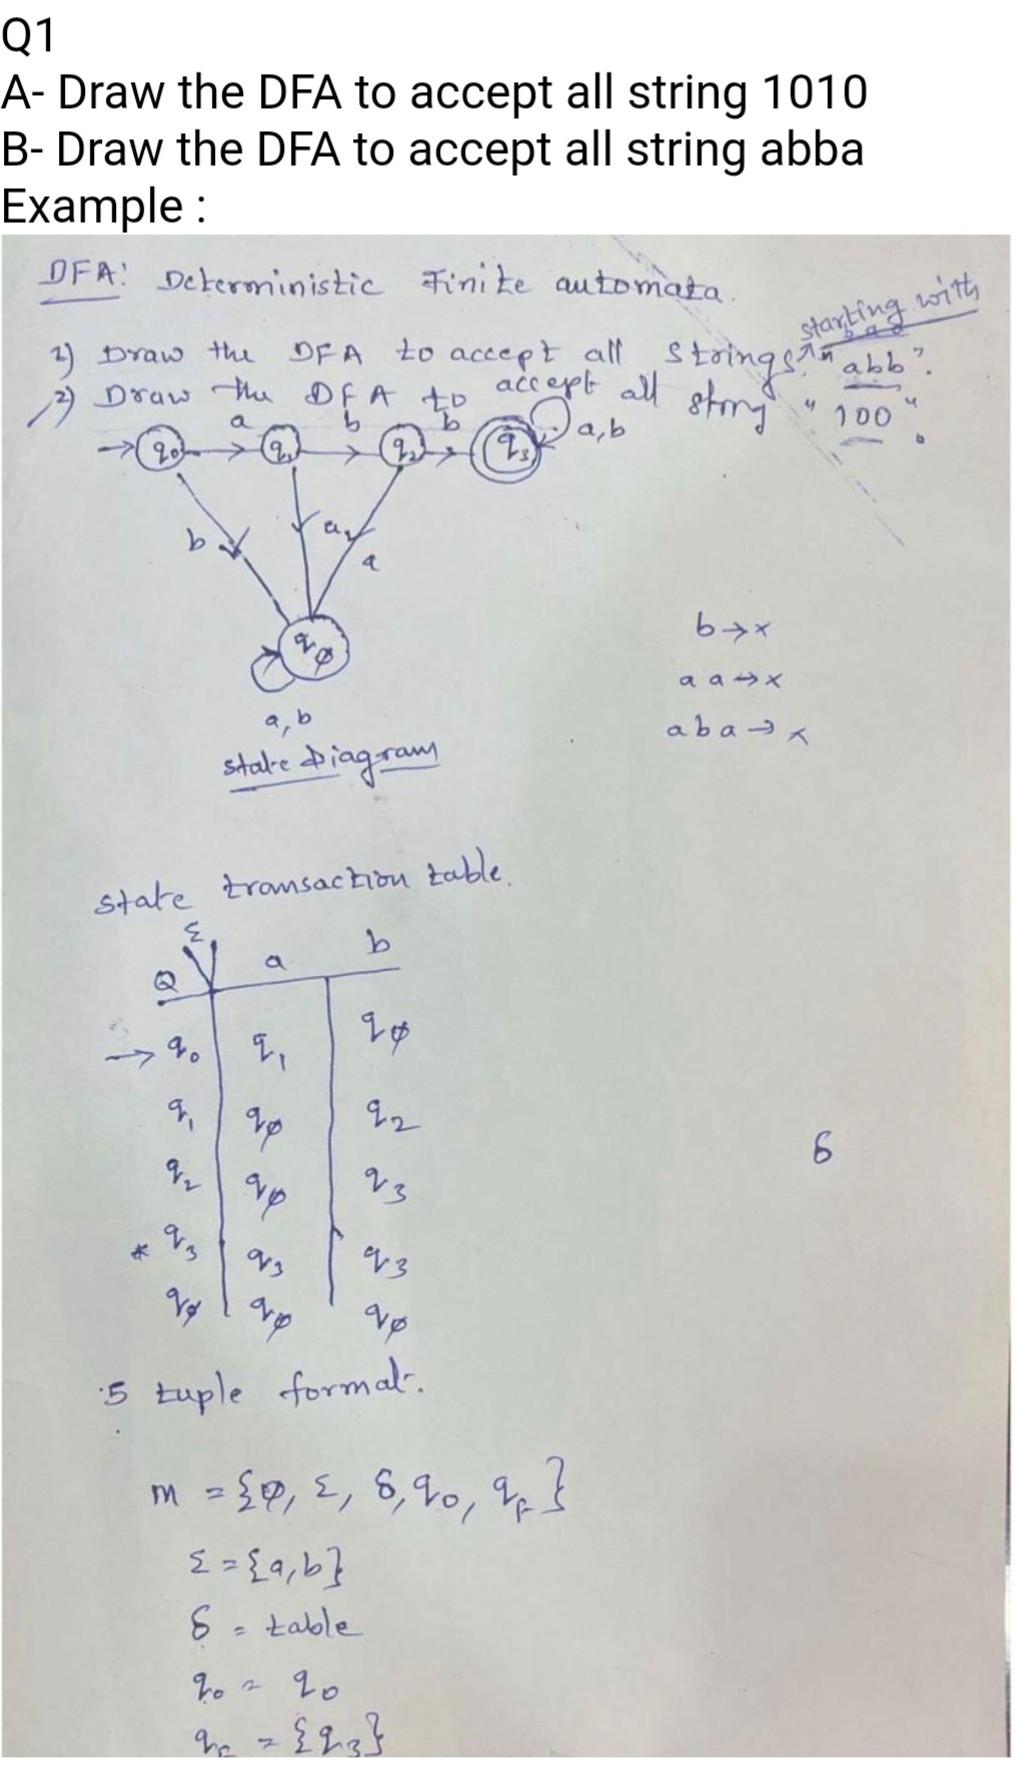 Q1
A- Draw the DFA to accept all string 1010
B- Draw the DFA to accept all string abba
Example :
DFA: Deterministic Finite automata.
starting with
1) Draw the DFA to accept all strings in "abb".
2) Draw the DFA to accept all string "100".
a b b a,b
→ q0 q1 q2 q3
b a a
qφ
a, b
state Diagram
b → x
a a → x
a b a → x
state transaction table.
Σ
Q a b
→ q0 q1 qφ
q1 qφ q2
q2 qφ q3
* q3 q3 q3
qφ qφ qφ
δ
5 tuple format.
m = {φ, Σ, δ, q0, qF}
Σ = {a,b}
δ = table
q0 = q0
= {q3}